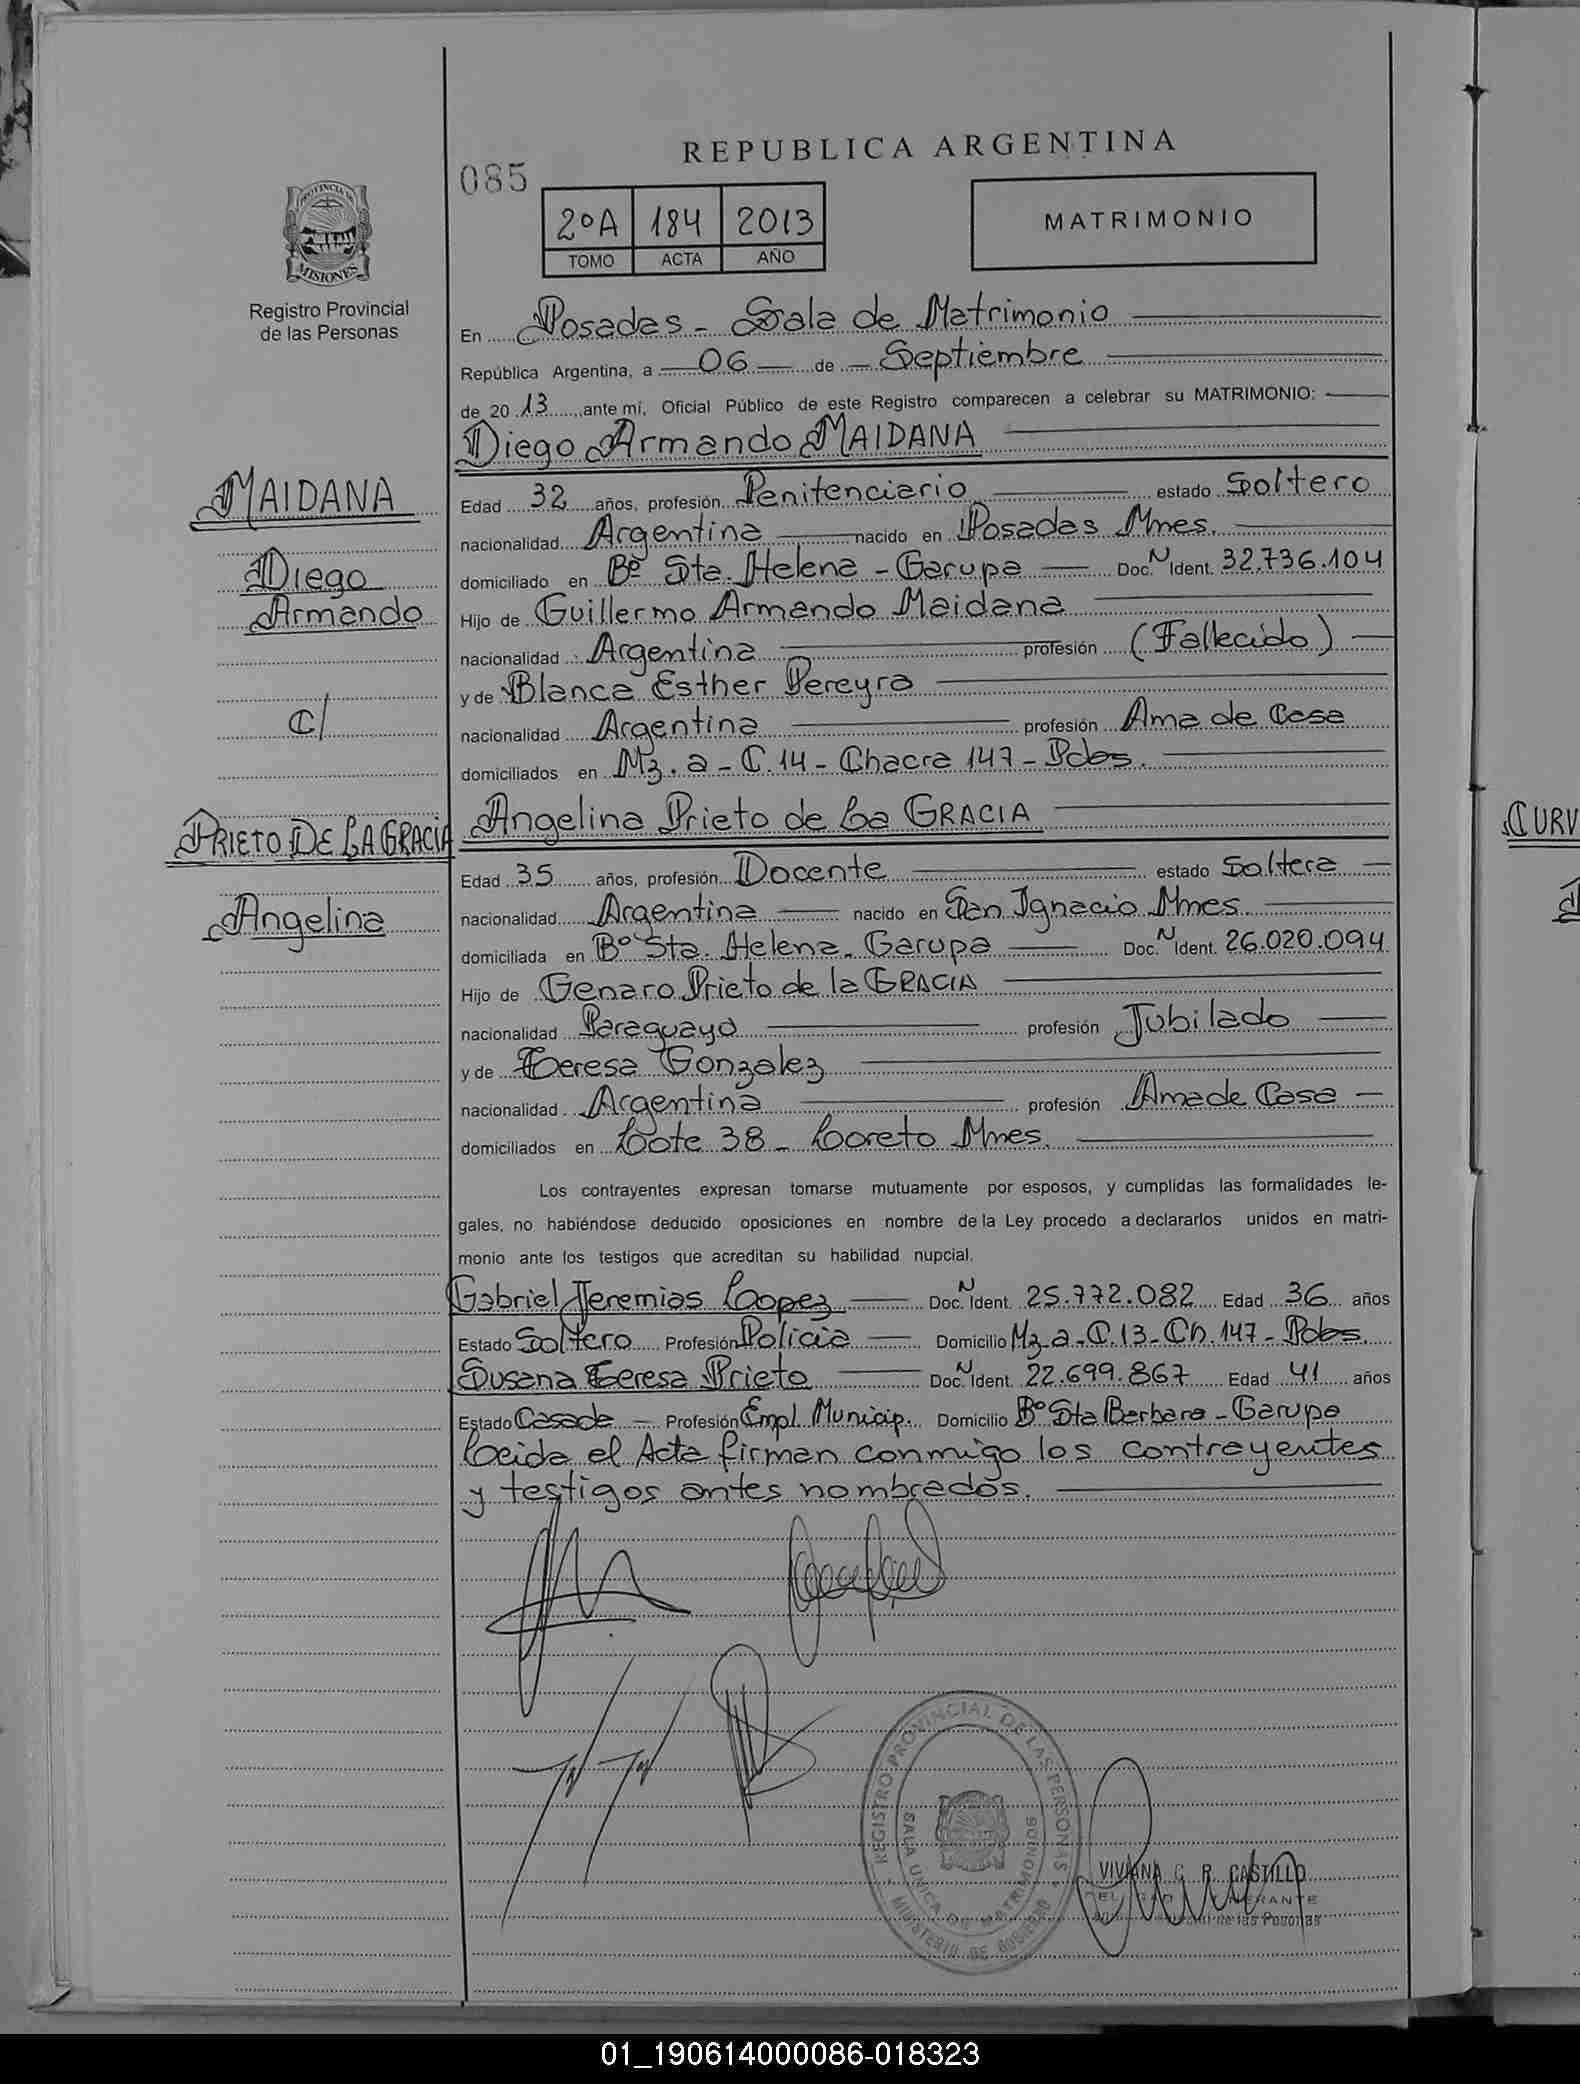 REPUBLICA ARGENTINA
085
2ºA 184 2013
TOMO ACTA AÑO
MATRIMONIO
PROVINCIA DE
MISIONES
Registro Provincial
de las Personas
En Posadas - Sala de Matrimonio
República Argentina, a 06 de Septiembre
de 2013 ante mí, Oficial Público de este Registro comparecen a celebrar su MATRIMONIO:
Diego Armando MAIDANA
MAIDANA
Diego
Armando
C/
Edad 32 años, profesión Penitenciario estado Soltero
nacionalidad Argentina nacido en Posadas Mnes.
domiciliado en Bº Sta. Helena - Garupa Doc. N Ident. 32.736.104
Hijo de Guillermo Armando Maidana
nacionalidad Argentina profesión (Fallecido)
y de Blanca Esther Pereyra
nacionalidad Argentina profesión Ama de Casa
domiciliados en Mz. a - C.14 - Chacra 147 - Pdas.
PRIETO DE LA GRACIA
Angelina
Angelina Prieto de La GRACIA
Edad 35 años, profesión Docente estado Soltera
nacionalidad Argentina nacido en San Ignacio Mnes.
domiciliada en Bº Sta. Helena. Garupa Doc. N Ident. 26.020.094
Hijo de Genaro Prieto de la GRACIA
nacionalidad Paraguayo profesión Jubilado
y de Teresa Gonzalez
nacionalidad Argentina profesión Ama de Casa
domiciliados en Lote 38 - Loreto Mnes.
Los contrayentes expresan tomarse mutuamente por esposos, y cumplidas las formalidades le-
gales, no habiéndose deducido oposiciones en nombre de la Ley procedo a declararlos unidos en matri-
monio ante los testigos que acreditan su habilidad nupcial.
Gabriel Jeremias Lopez Doc. N Ident. 25.772.082 Edad 36 años
Estado Soltero Profesión Policia Domicilio Mz a - C.13 - Ch. 147 - Pdas.
Susana Teresa Prieto Doc. N Ident. 22.699.867 Edad 41 años
Estado Casada Profesión Empl. Municip. Domicilio Bº Sta Barbara - Garupa
Leida el Acta firman conmigo los contrayentes
y testigos antes nombrados.
REGISTRO PROVINCIAL DE LAS PERSONAS
SALA UNICA DE MATRIMONIOS
MINISTERIO DE GOBIERNO
VIVIANA C. R. CASTILLO
de las Personas
CURV
01_190614000086-018323